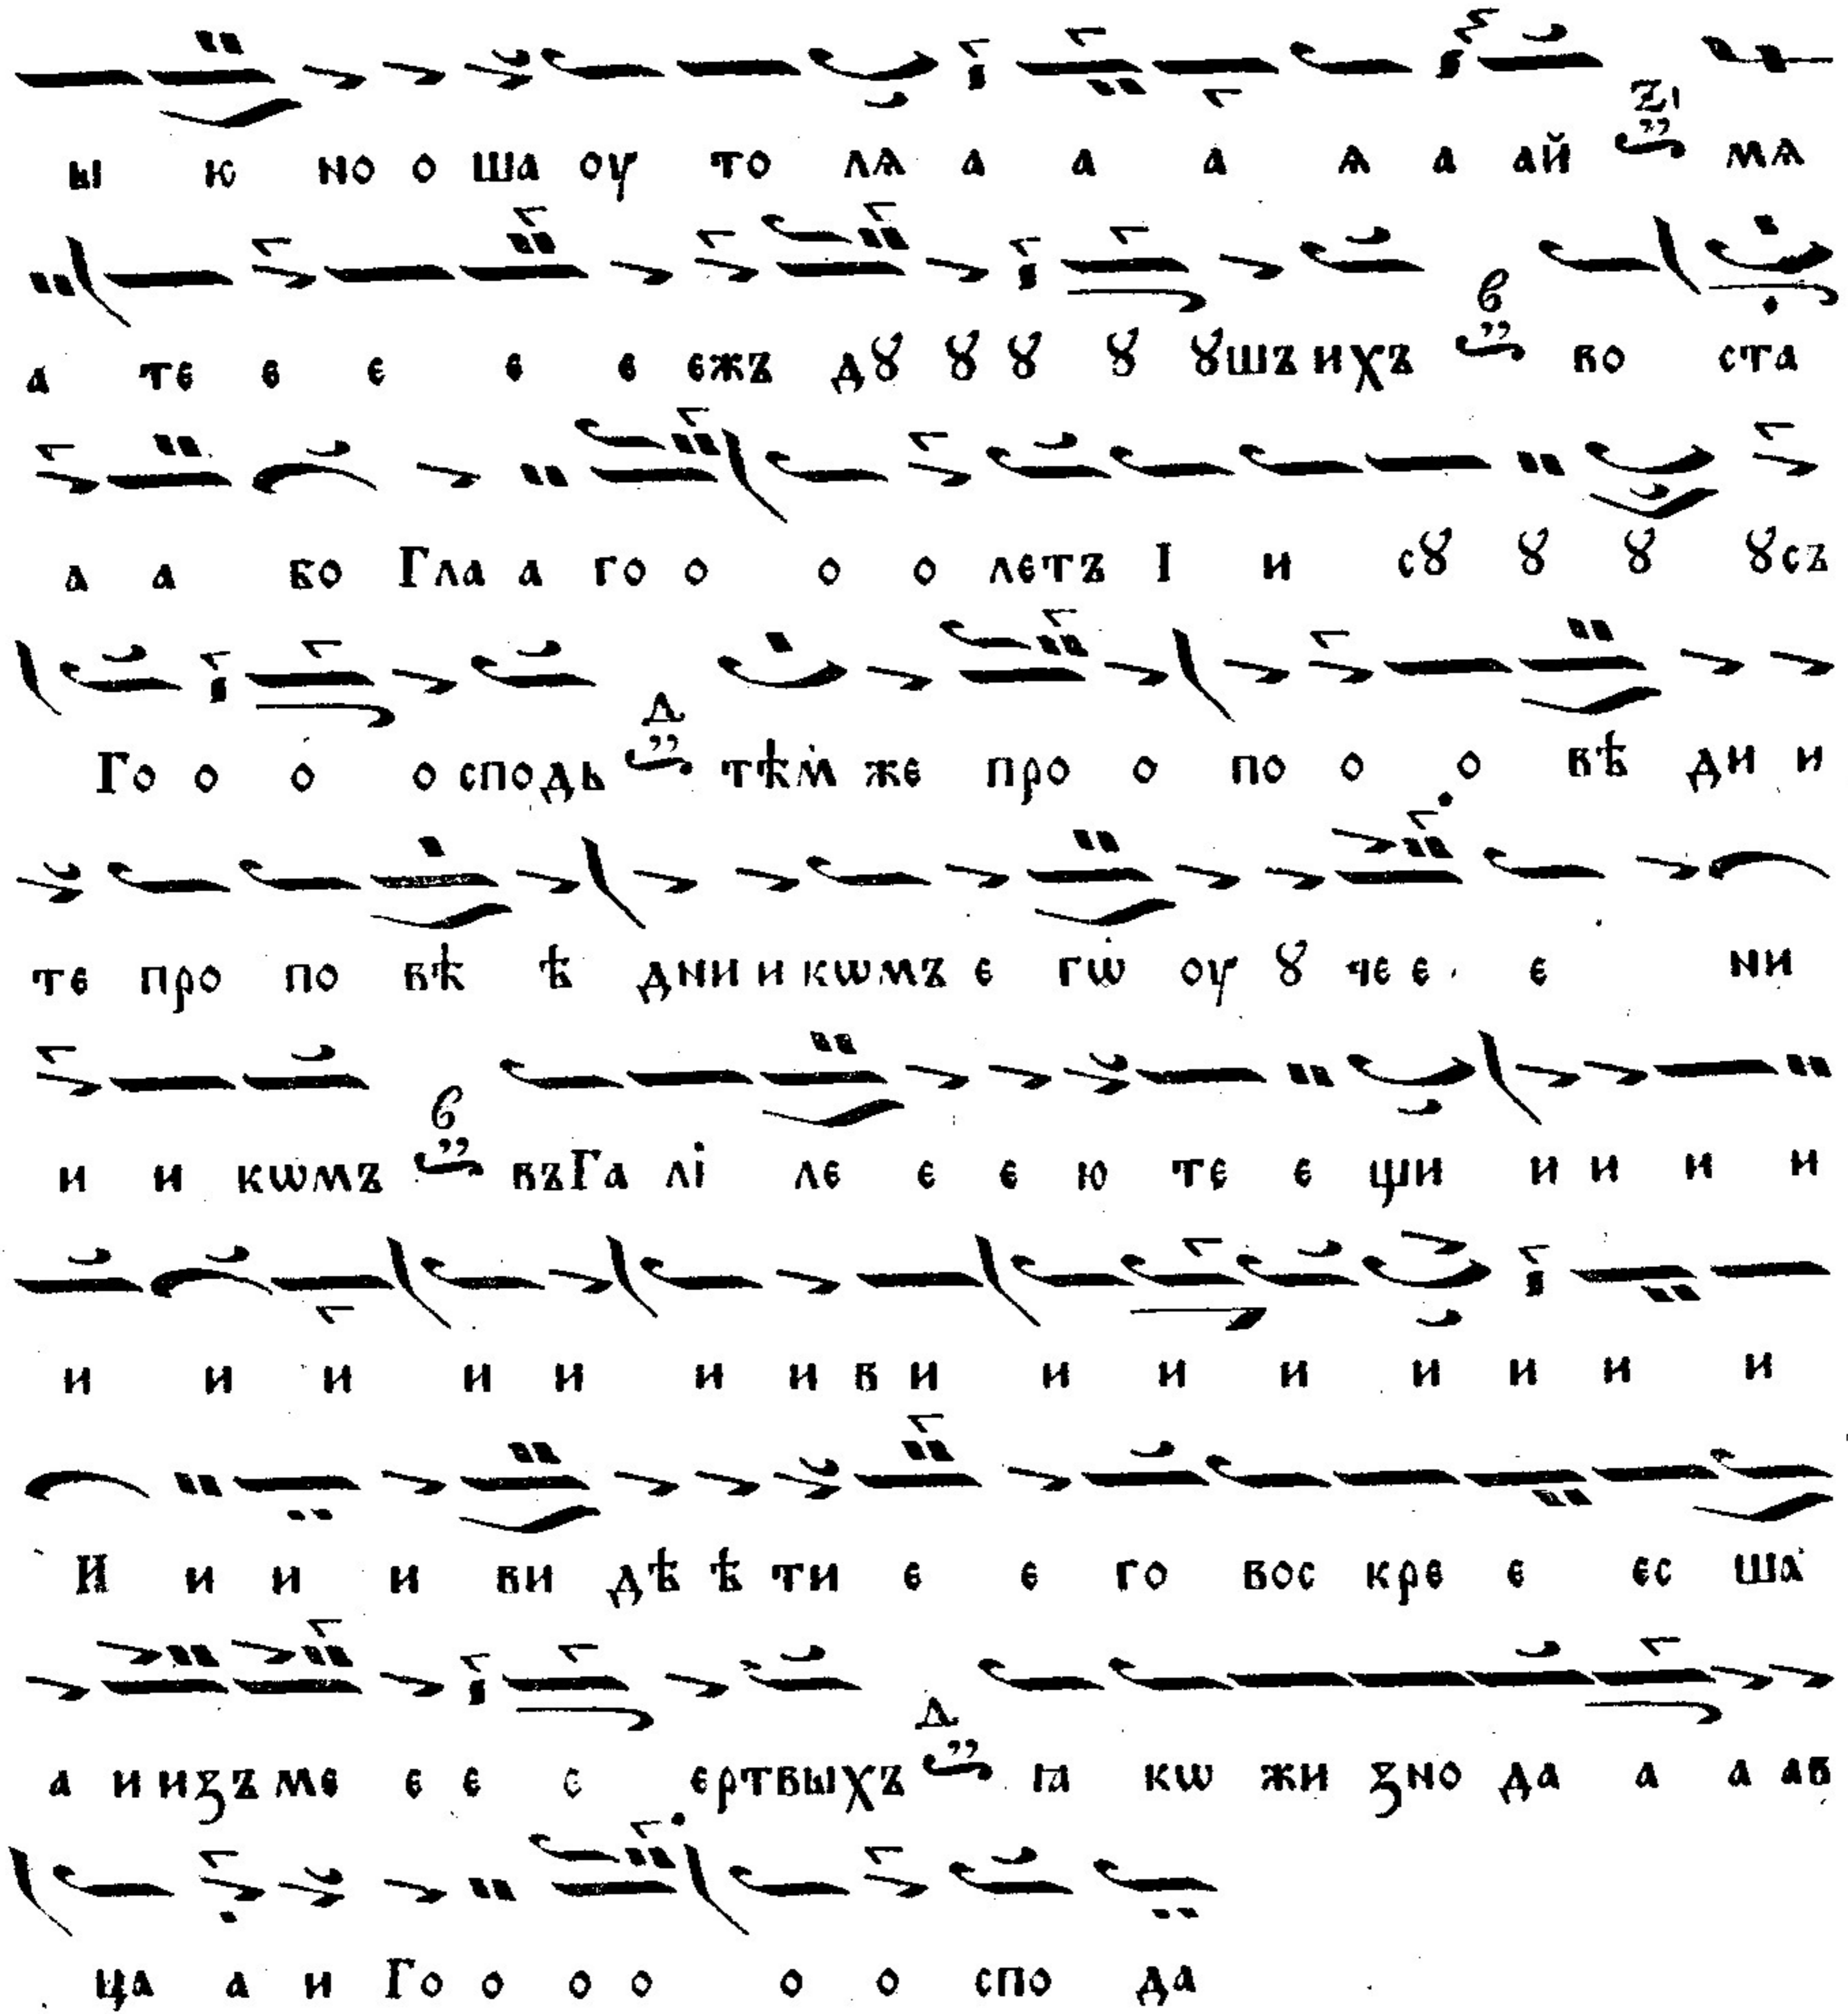 ы ю но о ша оу то лѧ а а а ѧ а ай мѧ
а те е е е е ежъ дꙋ ꙋ ꙋ ꙋ ꙋшъ ихъ в во ста
а а во Гла а го о о о летъ І и сꙋ ꙋ ꙋ ꙋсъ
Го о о о сподь д тѣм же про о по о о вѣ ди и
те про по вѣ ѣ дни и кѡмъ е гѡ оу ꙋ че е е ни
и и кѡмъ в въ Га лі ле е е ю те е щи и и и и
и и и и и и и в и и и и и и и и
И и и и ви дѣ ѣ ти е е го вос кре е ес ша
а и изъ ме е е е ертвыхъ д ꙗ кѡ жи зно да а а ав
ца а и Го о о о о о спо да